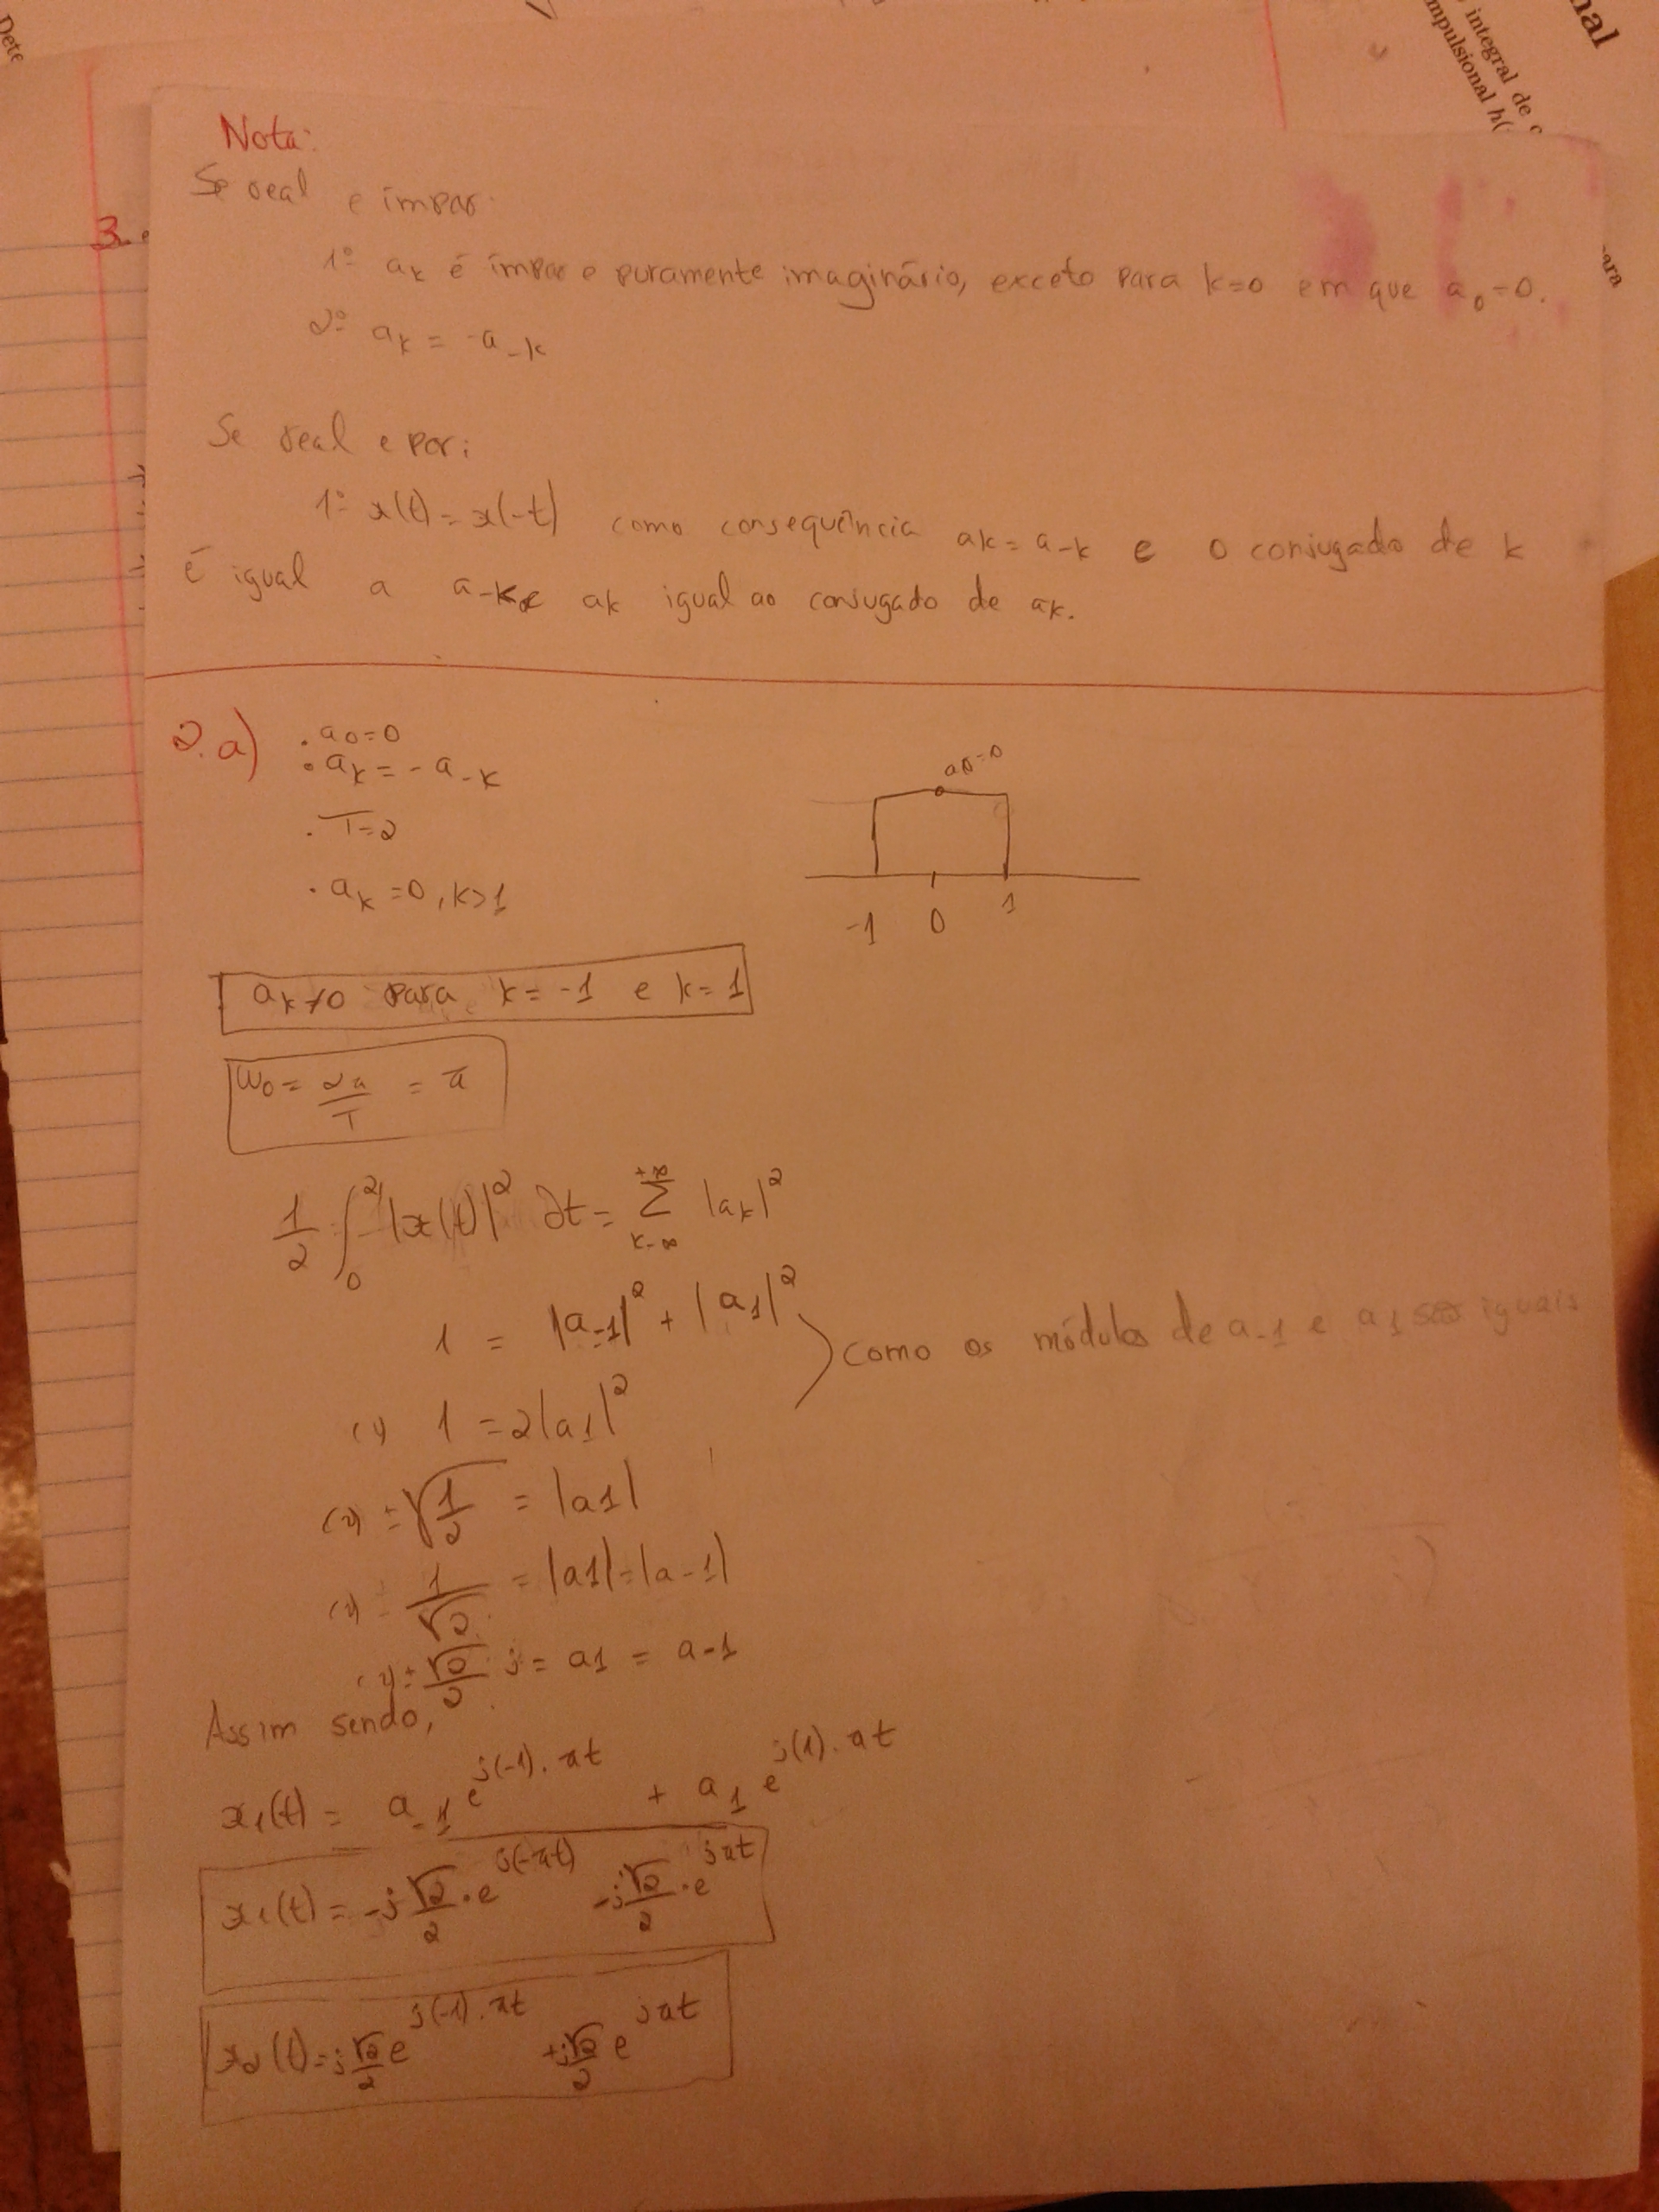 Dete
nal
integral de c
mpulsional h(
ara
3.
Nota:
Se real e impar:
1º ak é impar e puramente imaginário, exceto para k=0 em que a0=0.
2º ak = -a-k
Se real e par:
1º x(t) = x(-t) como consequência ak = a-k e o conjugado de k
é igual a a-k e ak igual ao conjugado de ak.
2.a) . a0=0
. ak = - a-k
a0=0
. T=2
. ak = 0, k>1
-1 0 1
ak≠0 para k = -1 e k = 1
ω0 = 2π/T = π
1/2 ∫₀² |x(t)|² ∂t = Σ |ak|²
1 = |a-1|² + |a1|²
como os módulos de a-1 e a1 são iguais
(=) 1 = 2|a1|²
(=) ±√(1/2) = |a1|
(=) 1/√2 = |a1| = |a-1|
(=) ± √2/2 j = a1 = a-1
Assim sendo,
x1(t) = a-1 e^(j(-1).πt) + a1 e^(j(1).πt)
x1(t) = -j √2/2 . e^(j(-πt)) -j √2/2 . e^(jπt)
x2(t) = j √2/2 e^(j(-1).πt) +j √2/2 e^(jπt)